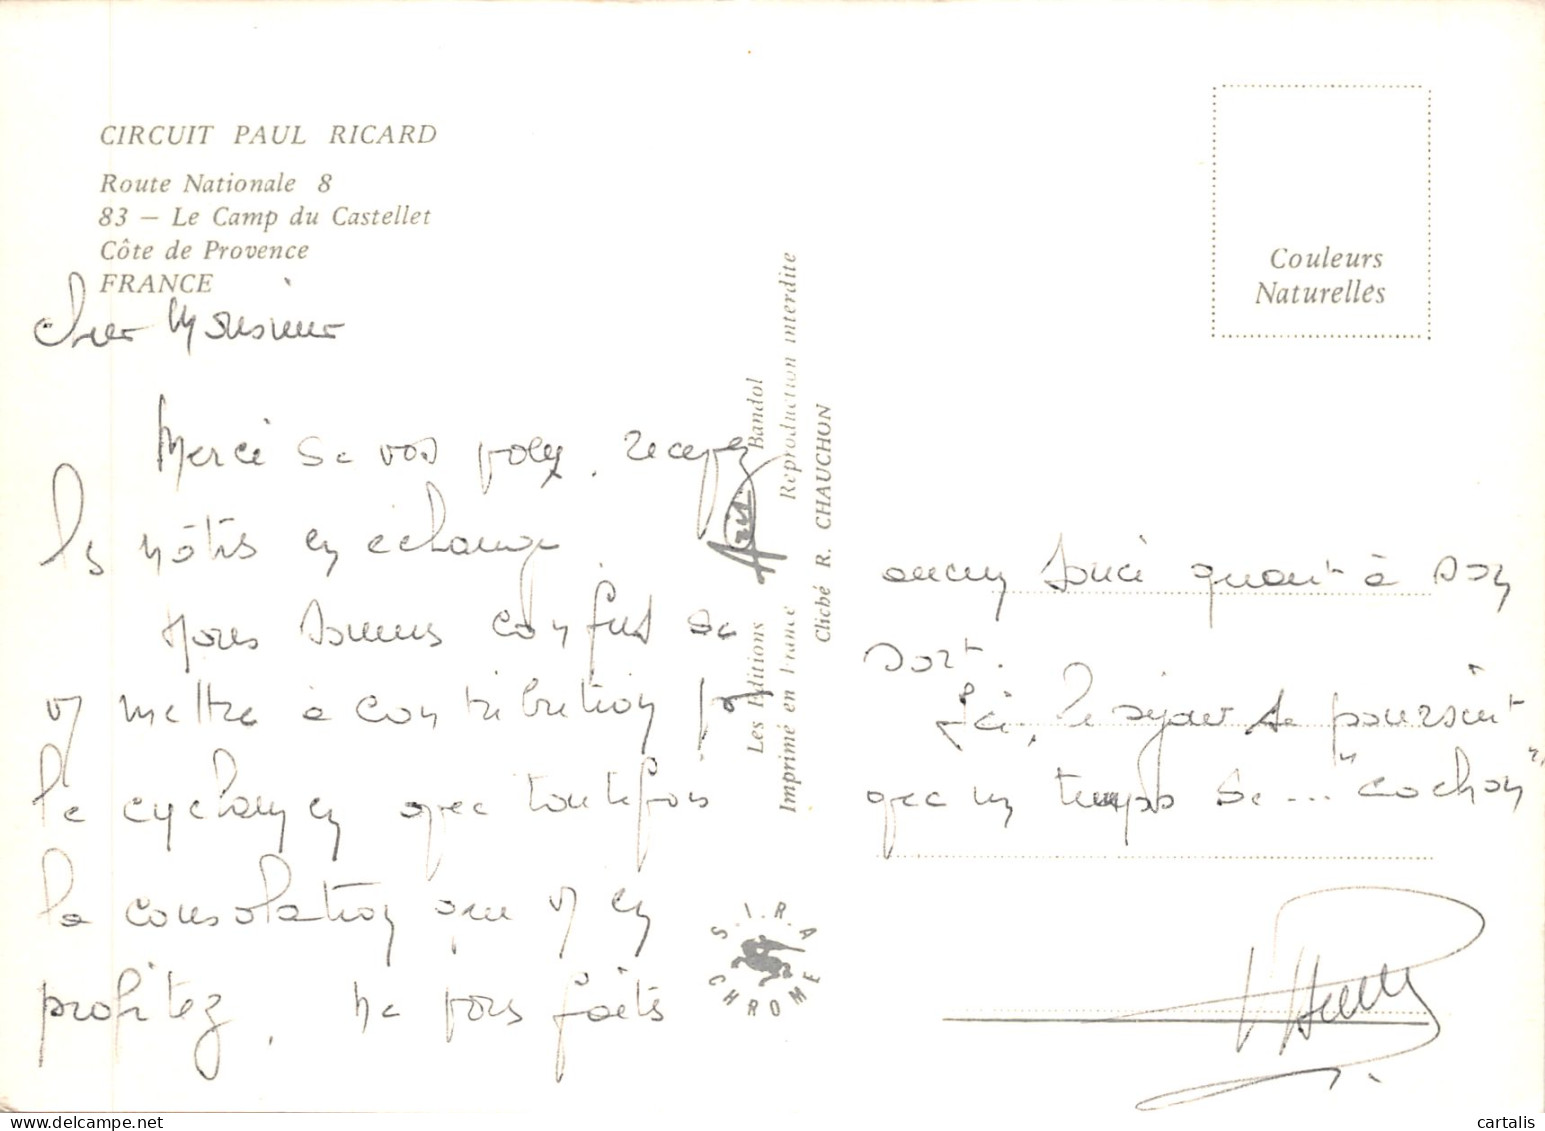 CIRCUIT PAUL RICARD
Route Nationale 8
83 — Le Camp du Castellet
Côte de Provence
FRANCE
Couleurs
Naturelles
Cher Monsieur
Merci de vos voeux, recevez
les nôtres en échange.
Nous sommes confus de
vs mettre à contribution pr
le cyclamen avec toutefois
la consolation que vs en
profitez, ne vous faites
aucun souci quant à son
sort.
Ici, le séjour se poursuit
avec un temps de... "cochon"
Les Editions Bandol
Imprimé en France Reproduction interdite
Cliché R. CHAUCHON
S.I.R.A
CHROME
cartalis